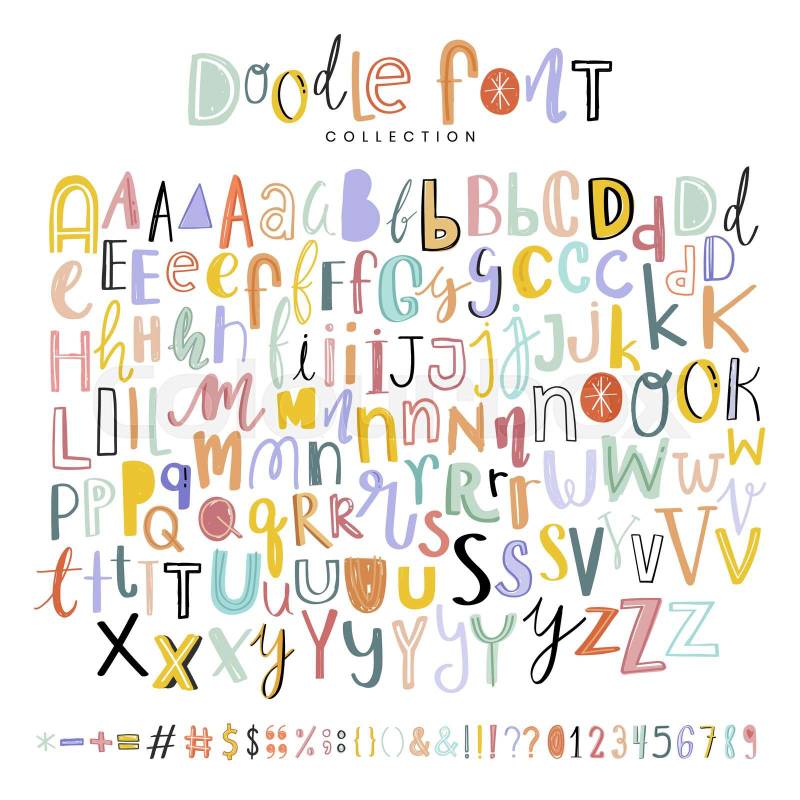 Doodle font
COLLECTION
A A A A A a a B b b B B b C D d d D d
e E E e e f f F f G g g C C C k d D K
H h H h h f i i i I J J j j J J k k K
L I I L m M n n n N n n O O O K
m m n r R r r w W w w w
P P P P q Q Q q R R r s S S S S V V V V v
t t t T T U u U U U u
X X X y Y Y Y y Y y Z Z Z
* - + = # # $ $ ; % ; : { } ( ) & & ! ! ! ? ? 0 1 2 3 4 5 6 7 8 9